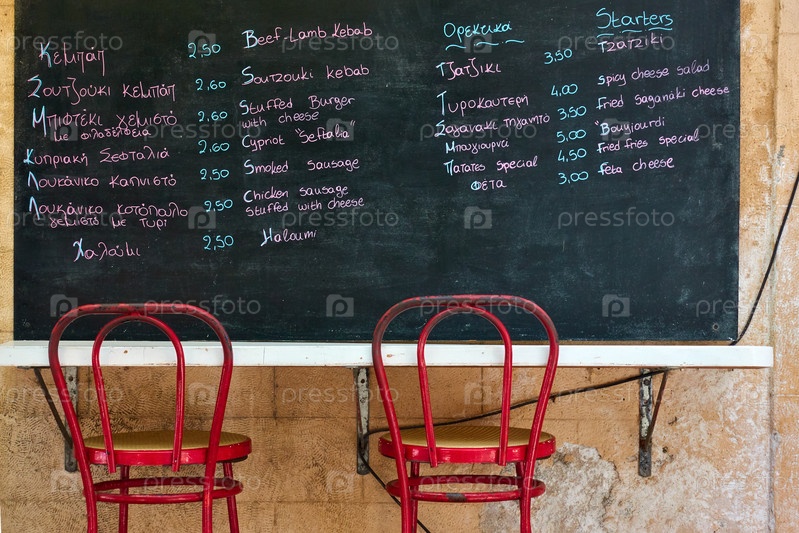 Κεμπάπ 2,50 Beef-Lamb Kebab
Σουτζούκι κεμπάπ 2,60 Soutzouki kebab
Μπιφτέκι χεμιστό 2,60 Stuffed Burger
με φιλαδέλφεια with cheese
Κυπριακή Σεφταλιά 2,60 Cypriot "Seftalia"
Λουκάνικο καπνιστό 2,50 Smoked sausage
Λουκάνικο κοτόπουλο 2,50 Chicken sausage
γεμιστό με τυρί stuffed with cheese
Χαλούμι 2,50 Haloumi
Ορεκτικά Starters
Τζατζίκι 3,50 Tzatziki
Τυροκαυτερή 4,00 spicy cheese salad
Σαγανάκι τηγανητό 3,50 fried saganaki cheese
Μπουγιουρντί 5,00 "Bouyiourdi
Πατάτες special 4,50 fried fries special
Φέτα 3,00 feta cheese
pressfoto